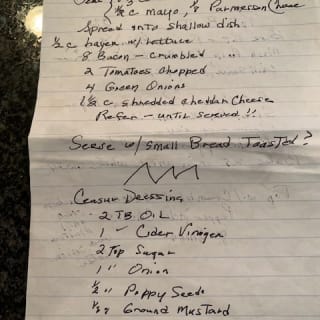 ½ c mayo, ⅓ Parmesson (have
Spread onto shallow dish
½ c layer w/ lettuce
8 Bacon - crumbled
2 Tomatoes chopped
4 Green Onions
1½ c. shredded cheddar cheese
Refer - until served !!
Serve w/ small Bread Toasted?
Ceasur Dressing
2 TB. OIL
1 " Cider Vinegen
2 Tsp Sugar
1 " Onion
½ " Poppy Seeds
¼ " Ground Mustard